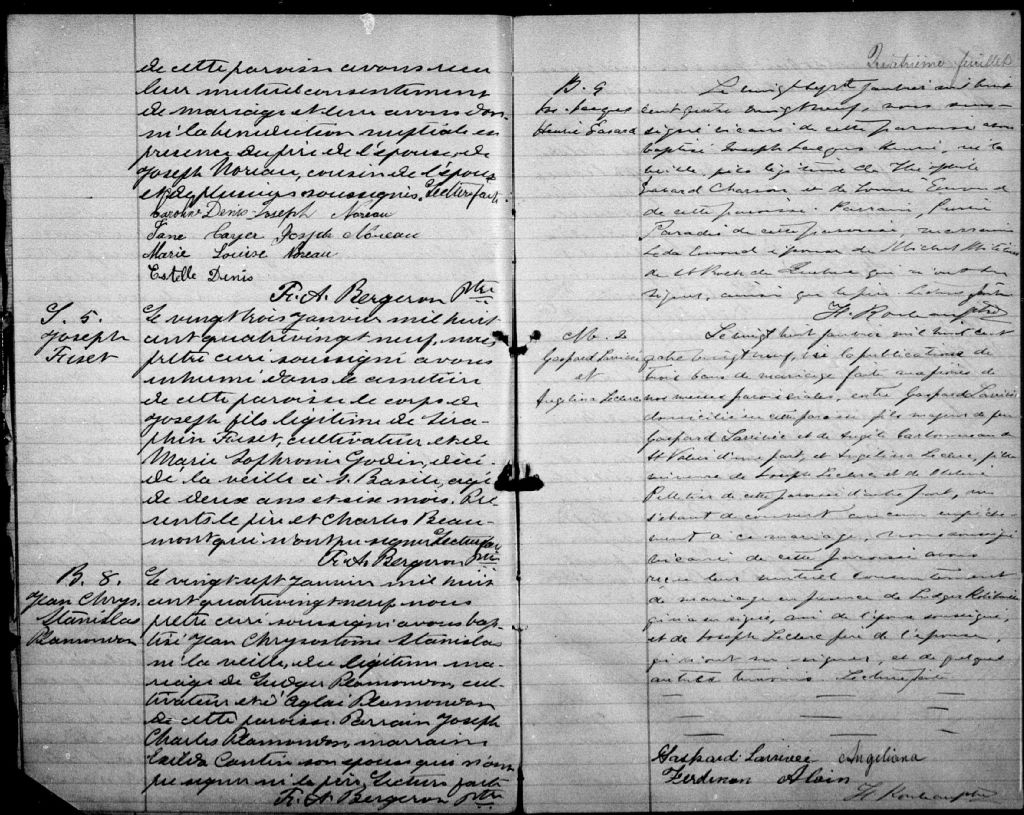 de cette paroisse avons reçu
leur mutuel consentement
de mariage et leur avons don-
né la bénédiction nuptiale en
présence du père de l'épouse, de
Joseph Noreau, cousin de l'époux
et de plusieurs soussignés. Lecture faite.
Caroline Denis Joseph Noreau
Jane Cayer Joseph Noreau
Marie Louise Noreau
Estelle Denis
Fr. A. Bergeron Ptre
S. 5.
Joseph
Fiset
Le vingt trois Janvier mil huit
cent quatrevingt neuf, nous,
prêtre curé soussigné avons
inhumé dans le cimetière
de cette paroisse le corps de
Joseph fils légitime de Séra-
phin Fiset, cultivateur et de
Marie Sophronie Godin, décé-
dé la veille à St. Basile, agé
de deux ans et six mois. Pré-
sents le père et Charles Beau-
mont qui n'ont pu signer. Lecture faite
Fr. A. Bergeron Ptre
B. 8.
Jean Chrys.
Stanislas
Plamondon
Le vingt sept Janvier mil huit
cent quatrevingt neuf nous
prêtre curé soussigné avons bap-
tisé Jean Chrysostome Stanislas
né la veille, du légitime ma-
riage de Ludger Plamondon, cul-
tivateur et d'Aglaé Plamondon
de cette paroisse. Parrain Joseph
Charles Plamondon, marraine
Exilda Cantin son épouse qui n'ont
pu signer ni le père. Lecture faite
Fr. A. Bergeron Ptre
feuillet
B. 9
Jos. Jacques
Henri
Le vingt sept janvier mil huit
cent quatre vingt neuf, nous sous-
signé vicaire de cette paroisse avons
baptisé Joseph Jacques Henri, né la
veille, fils légitime de Théophile
et de Louise
de cette paroisse. Parrain,
Paradis de cette paroisse, marraine
épouse de Michel
de St Roch de Québec qui n'ont su
signer, ainsi que le père. Lecture faite
M. 2
Gaspard Larivée
et
Angelina Leclerc
Le vingt huit janvier mil huit cent
quatre vingt neuf, vu la publication de
trois bans de mariage faite aux prônes de
nos messes paroissiales, entre Gaspard Larivée
domicilié en cette paroisse fils majeur de feu
Gaspard Larivée et de Angèle Carbonneau de
St Valier d'une part, et Angelina Leclerc, fille
mineure de Joseph Leclerc et de
Pelletier de cette paroisse d'autre part, ne
s'étant découvert aucun empêche-
ment à ce mariage, nous soussigné
vicaire de cette paroisse avons
reçu leur mutuel consentement
de mariage en présence de Ludger
qui a signé, ami de l'époux soussigné,
et de Joseph Leclerc père de l'épouse,
qui n'ont su signer, et de quelques
autres témoins. Lecture faite
Gaspard Larrivée Angeliana
Ferdinan Alain